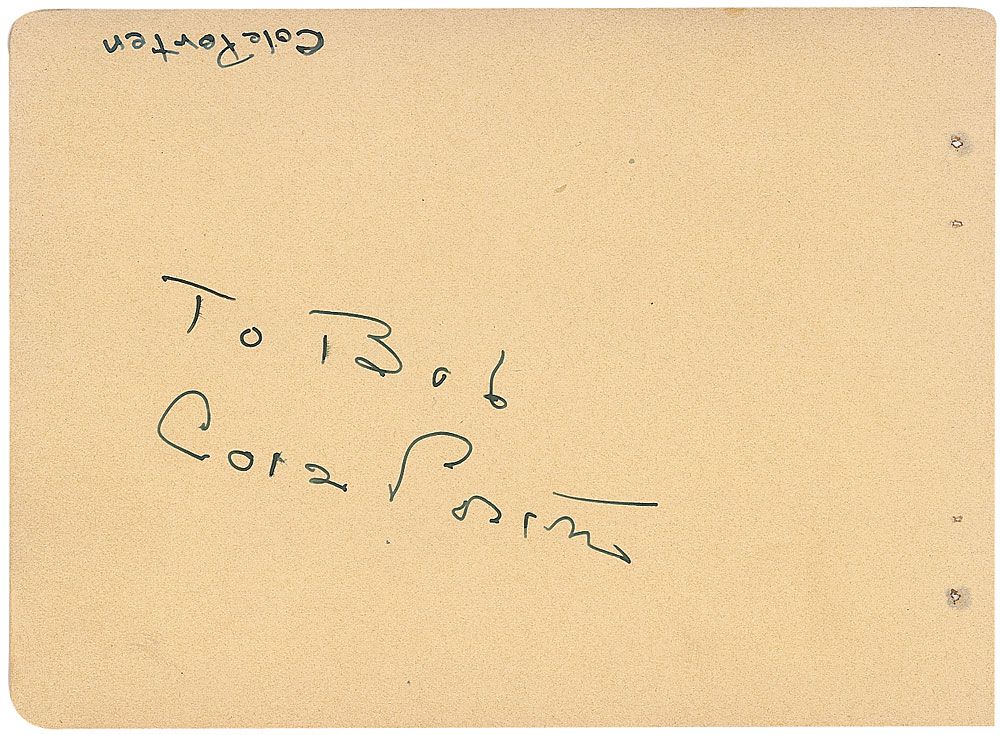 Cole Porter
To Bob
Cole Porter